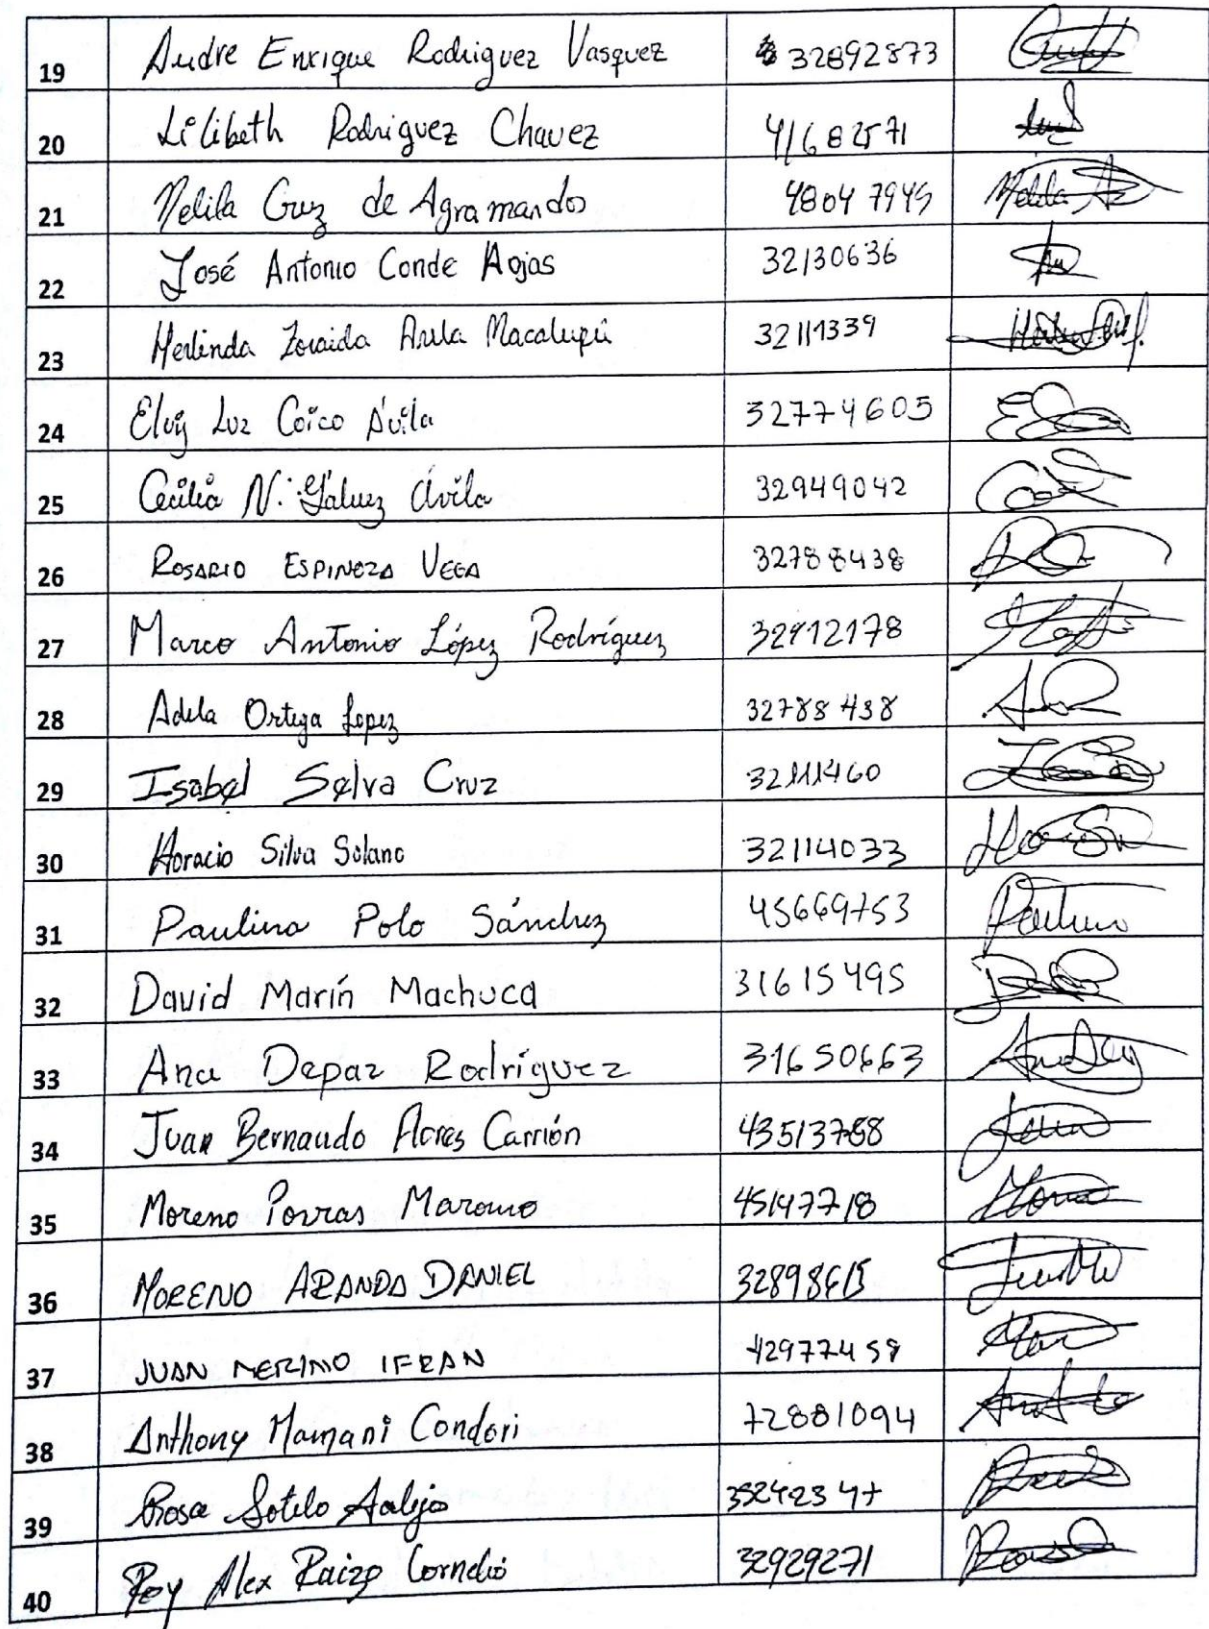 19 Andre Enrique Rodriguez Vasquez 32892873
20 Lilibeth Rodriguez Chavez 41682571
21 Nelila Cruz de Agramandos 48047945
22 José Antonio Conde Aojas 32130636
23 Herlinda Zoraida Avila Macalupú 32111339
24 Elvij Luz Coico Ávila 32774605
25 Cecilia N. Galvez Ávila 32949042
26 ROSARIO ESPINOZA VEGA 32788438
27 Marco Antonio López Rodríguez 32912178
28 Adela Ortega Lopez 32788438
29 Isabel Selva Cruz 32111460
30 Horacio Silva Solano 32114033
31 Paulina Polo Sánchez 45669753
32 David Marín Machuca 31615495
33 Ana Depaz Rodríguez 31650663
34 Juan Bernaudo Flores Carrión 43513788
35 Moreno Porras 45147718
36 MORENO ARANDA DANIEL
37 JUAN MERINO 42977459
38 Anthony Mamani Condori 72881094
39 Rosa Sotelo
40 Roy Alex Cornelio 32929271